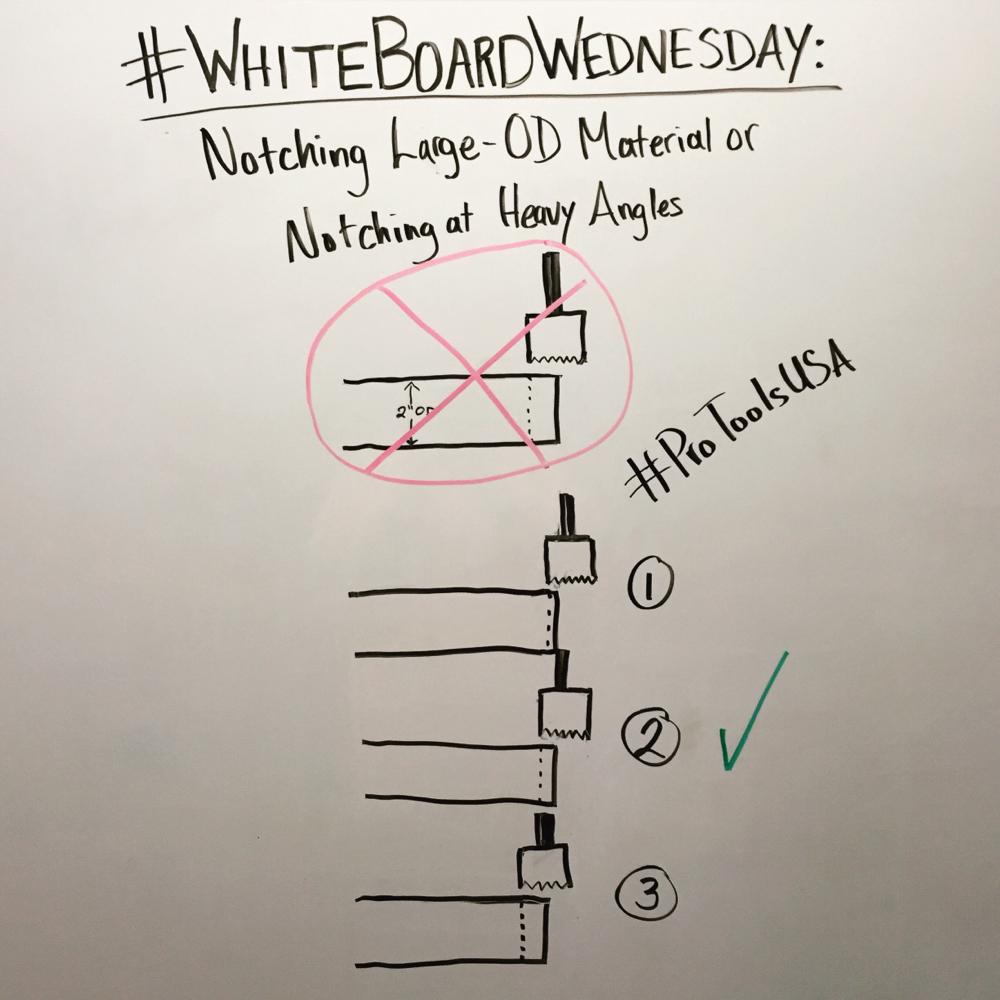 #WHITEBOARDWEDNESDAY:
Notching Large-OD Material or
Notching at Heavy Angles
2" or
#ProToolsUSA
1
2
3